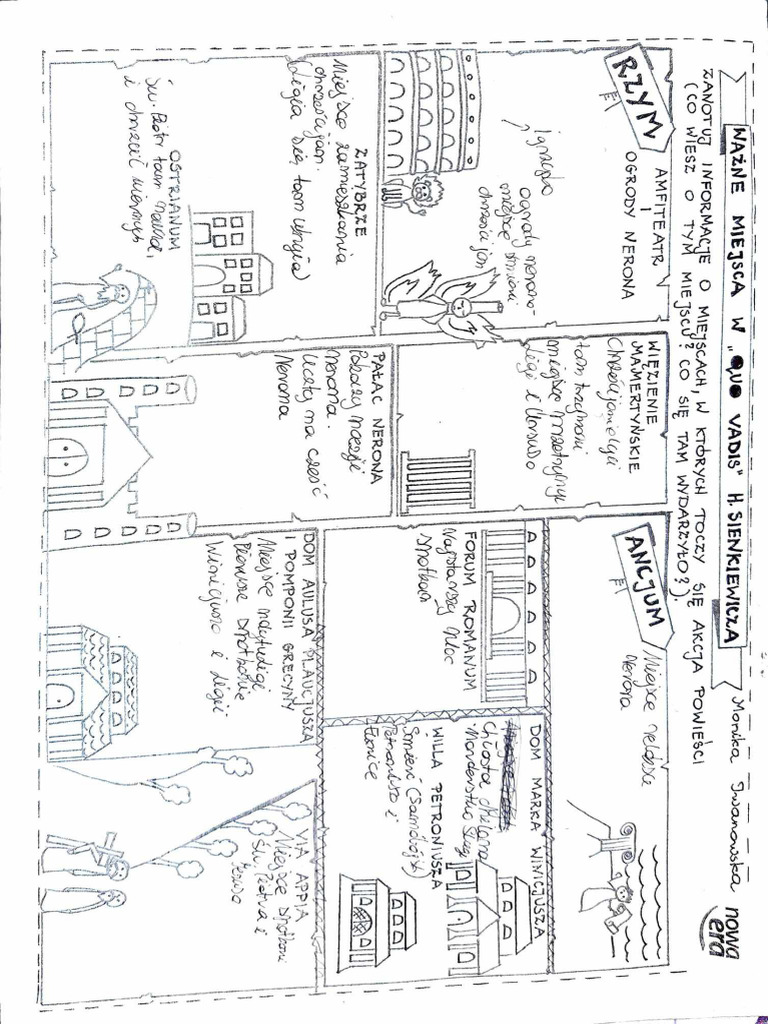 WAŻNE MIEJSCA W „QUO VADIS" H. SIENKIEWICZA
Monika Iwanowska
nowa
era
ZANOTUJ INFORMACJE O MIEJSCACH, W KTÓRYCH TOCZY SIĘ AKCJA POWIEŚCI
(CO WIESZ O TYM MIEJSCU? CO SIĘ TAM WYDARZYŁO?).
RZYM
AMFITEATR
I
OGRODY NERONA
igrzyska
ogrody nerona-
miejsce śmierci
chrześcijan
WIĘZIENIE
MAMERTYŃSKIE
tam trzymani
miejsce
Ligi i Ursusa
ANCJUM
Miejsce
Nerona
ZATYBRZE
Miejsce zamieszkania
chrześcijan.
(Ligia się tam ukrywa)
OSTRIANUM
Św. Piotr tam nauczał,
i chrzcił wiernych
PAŁAC NERONA
Pokazy poezji
nerona.
Uczty na cześć
Nerona
FORUM ROMANUM
Najstarszy plac
spotkań
DOM MARKA WINICJUSZA
Chłosta Chilona
Morderstwo sługi
WILLA PETRONIUSZA
Śmierć (samobójstwo)
Petroniusza i
Eunice
DOM AULUSA PLAUCJUSZA
I POMPONII GRECYNY
Miejsce
Pierwsze spotkanie
Winicjusza i Ligii
VIA APPIA
Miejsce spotkania
Św. Piotra i
Jezusa